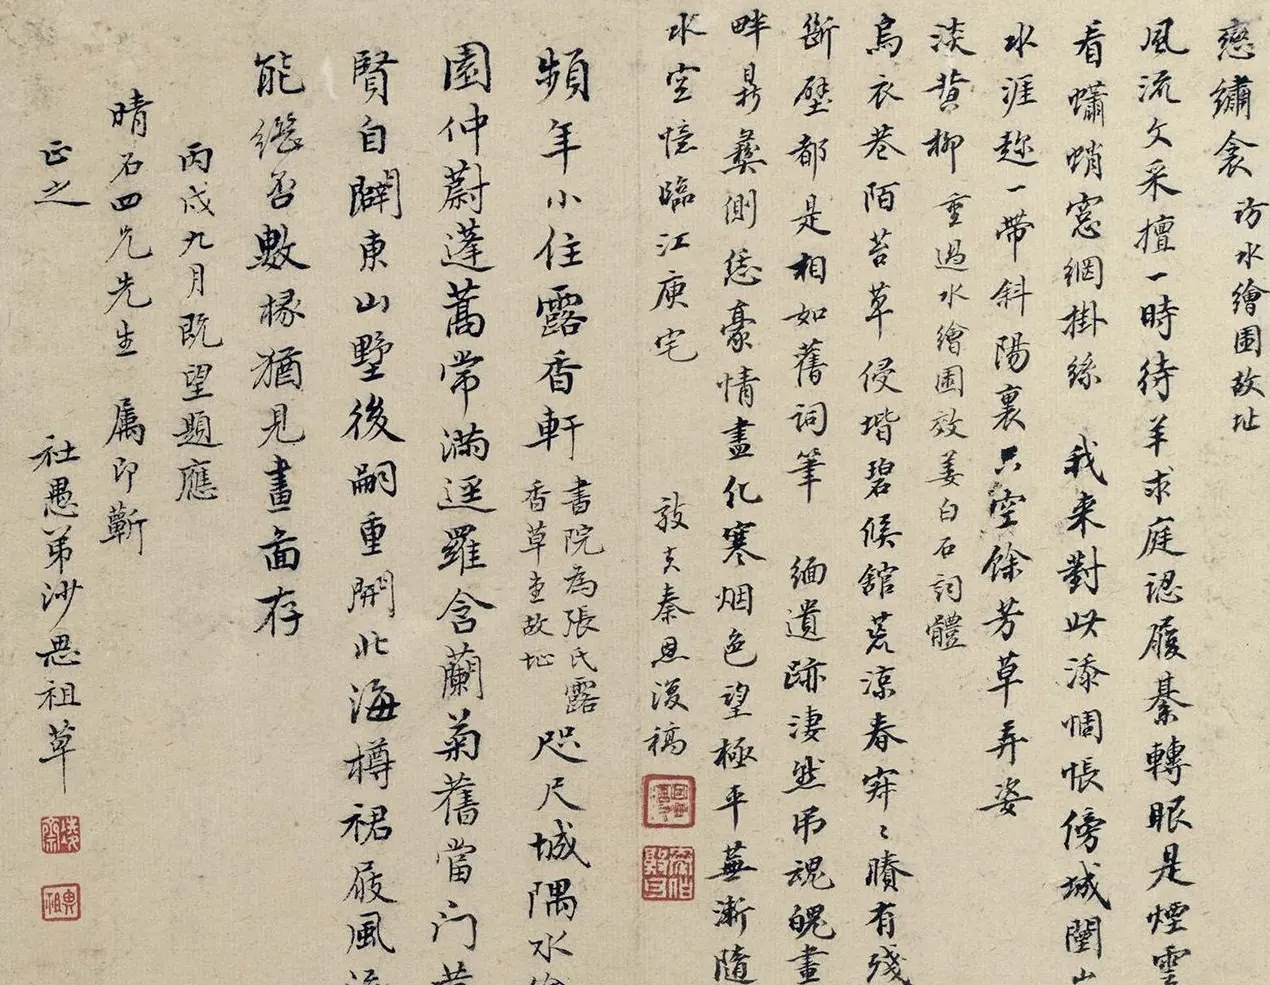 戀繡衾 訪水繪園故址
風流文采擅一時待羊求庭認履綦轉眼是煙雲
看蠨蛸窓網掛絲 我來對此添惆悵傍城闉
水涯趁一帶斜陽裏只空餘芳草弄姿
淡黄柳 重過水繪園效姜白石詞體
烏衣巷陌苔草侵堦碧候舘荒涼春寂〻賸有殘
斷壁都是相如舊詞筆 緬遺跡淒然吊魂魄畫
畔鼎彝側恁豪情盡化寒烟色望極平蕪漸隨
水空憶臨江庾宅
敦夫秦恩復稿
頻年小住露香軒 書院為張氏露香草堂故址 咫尺城隅水
園仲蔚蓬蒿常滿逕羅含蘭菊舊當门
賢自闢東山墅後嗣重開北海樽裙屐風
能繼否數椽猶見畫面存
丙戌九月既望題應
晴石四兄先生 属印蘄
正之
社愚弟沙思祖草